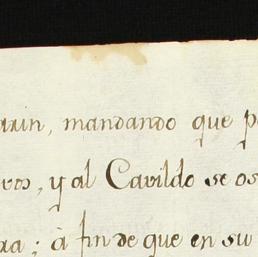 arin, mandando que p
vos, y al Cavildo se os
xa; à fin de que en su